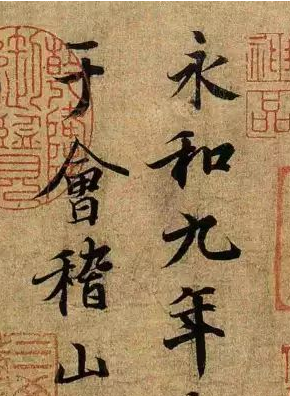 永和九年
于會稽山
神品